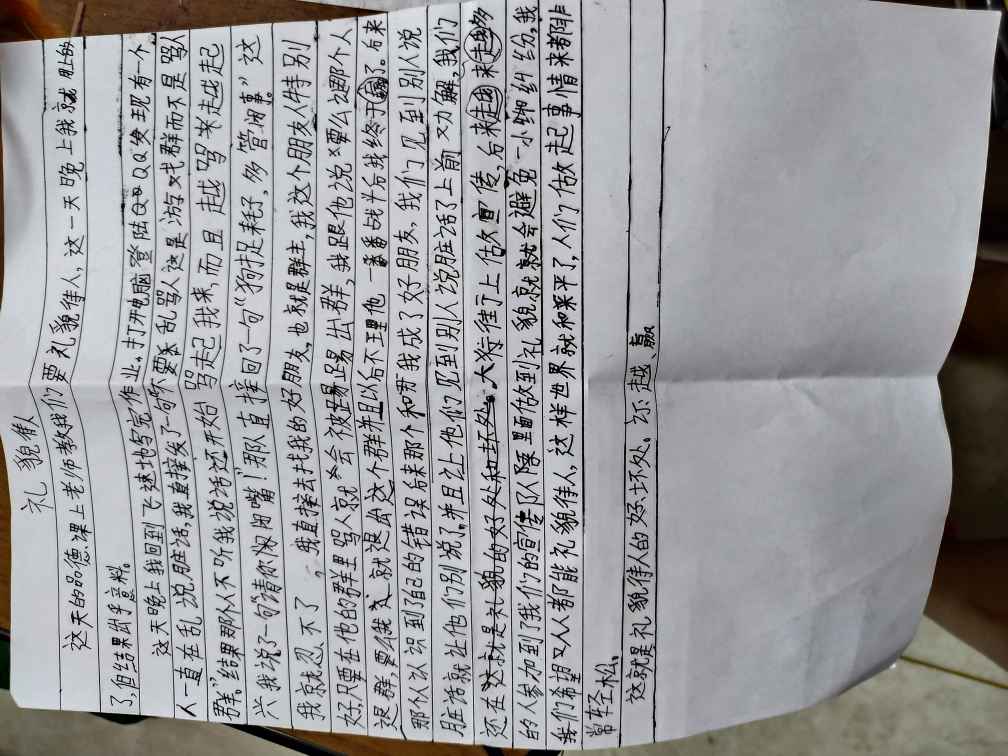 礼貌待人
这天的品德课上老师教我们要礼貌待人，这一天晚上我就
了，但结果出乎意料。
这天晚上我回到飞速地写完作业。打开电脑登陆QQ发现有一个
人一直在乱说脏话，我直接发了一句不要乱骂人这是游戏群而不是骂人
群。”结果那人不听我说话还开始骂起我来，而且越骂越起
兴我说了一句请你闭嘴！”那队直接回了一句“狗拿耗子，多管闲事。”这
我就忍不了，我直接去找我的好朋友，也就是群主，我这个朋友人特别
好，只要在他的群里骂人就会被踢出群，我跟他说要么那个人
退群，要么我就退出这个群并且以后不理他一番战斗后我终于赢了。后来
那个人认识到了自己的错误后来那个和我成了好朋友，我们见到别人说
脏话就让他们别说了，并且让他们见到别人说脏话了上前劝解，我们
还在大街上做宣传，后来越来越多
的人参加到了我们的宣传队队里面做到礼貌就会避免一小纠纷，我
我们希望人人都能礼貌待人，这样世界就和平了，人们做起事情来都非
常轻松。
这就是礼貌待人的好坏处。